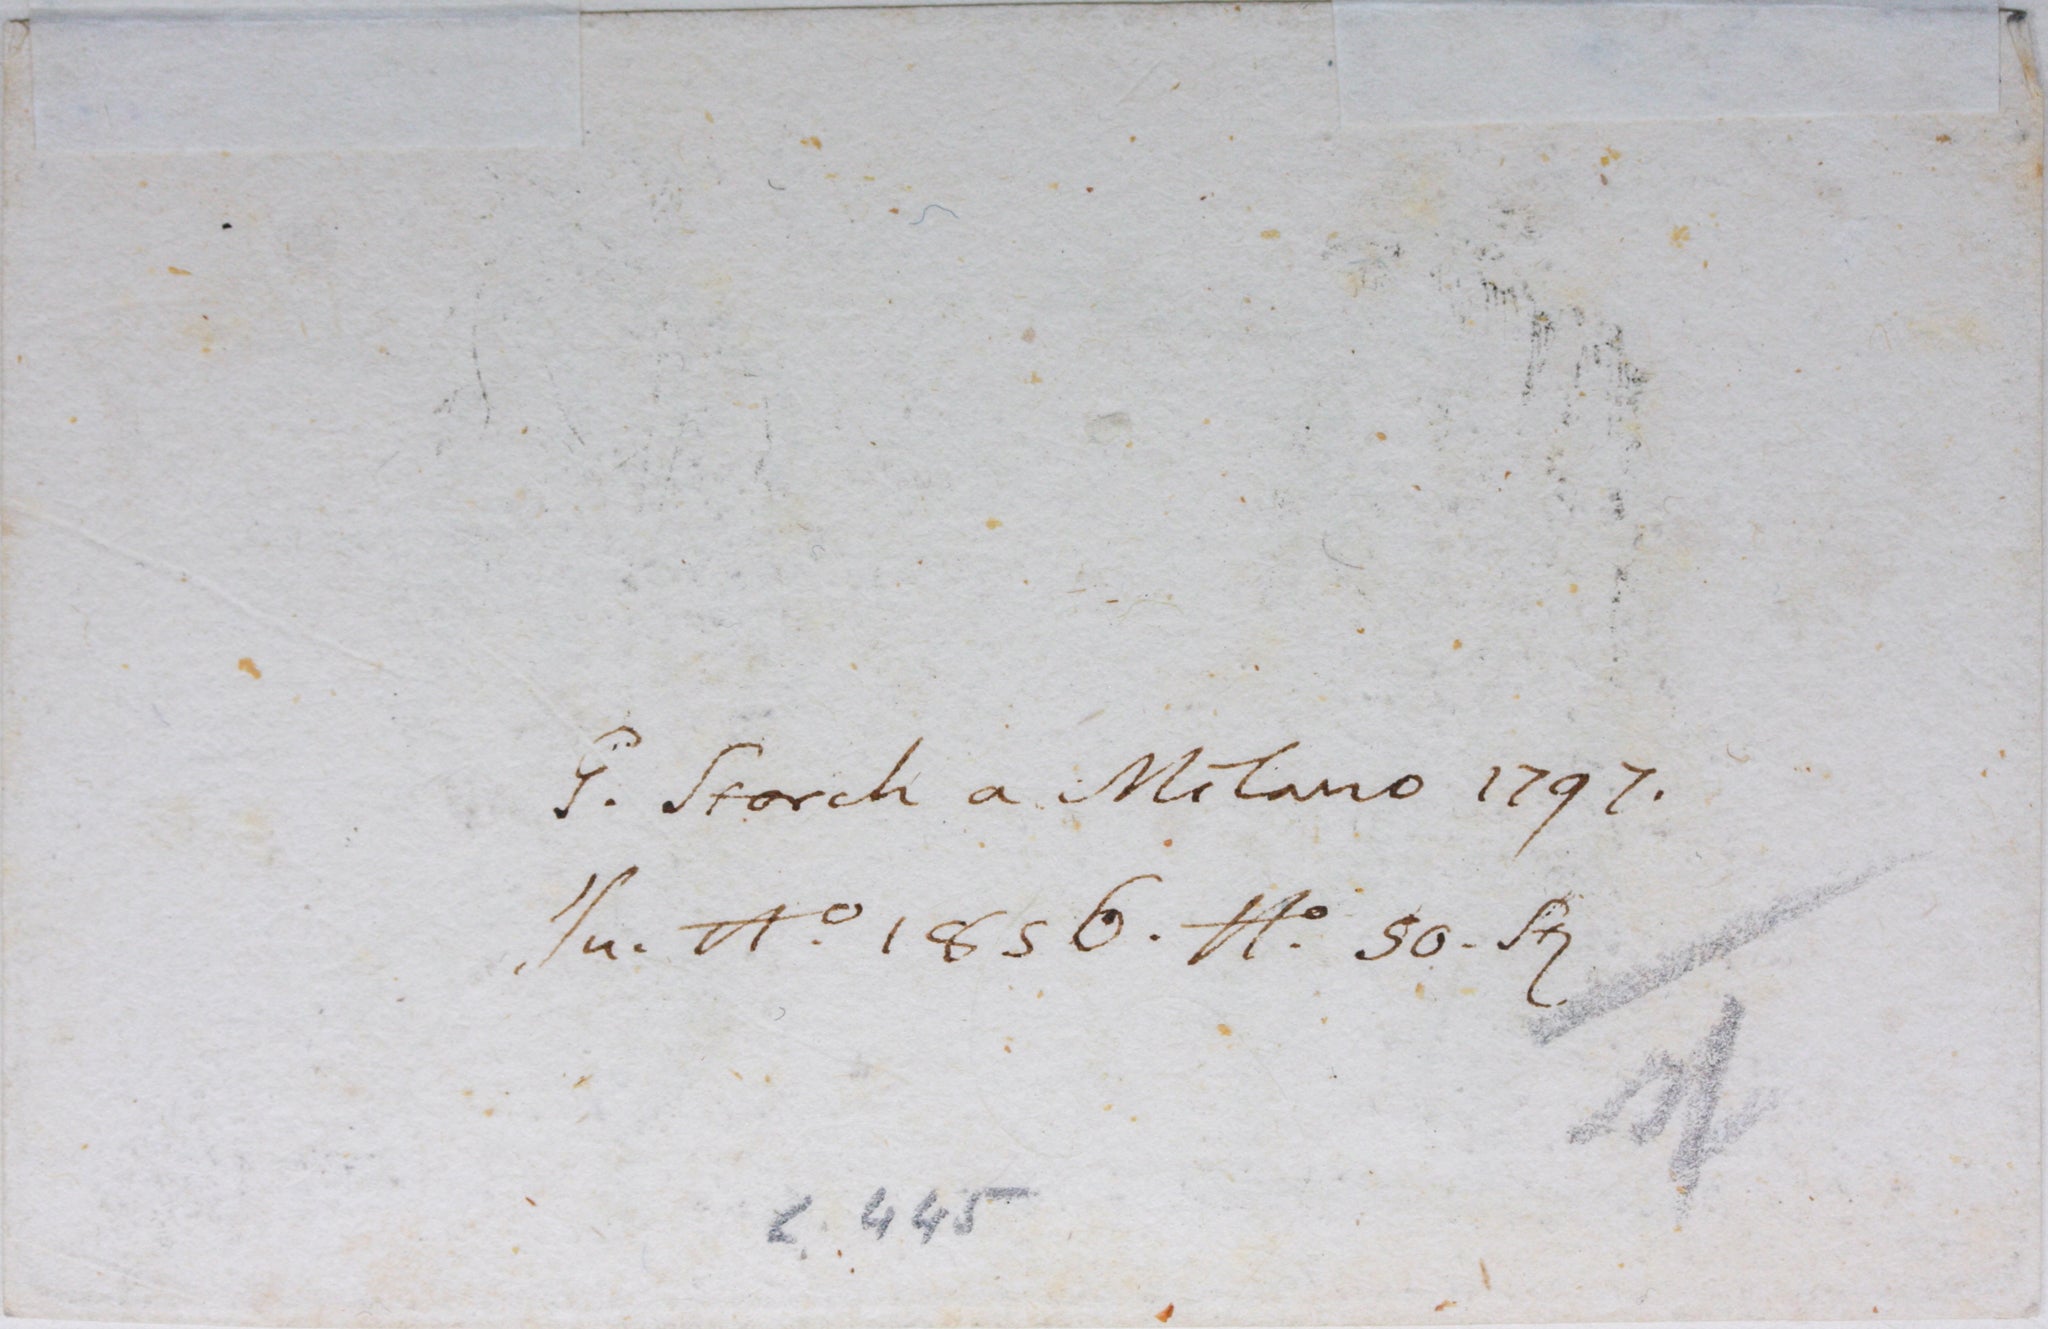 G. Storck a Milano 1797.
In. No. 1856. No. 50. St
c. 445